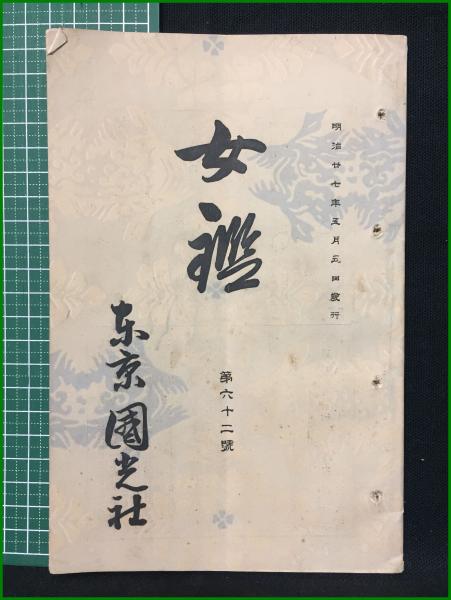 明治廿七年五月五日發行
女鑑
第六十二號
东京 國光社